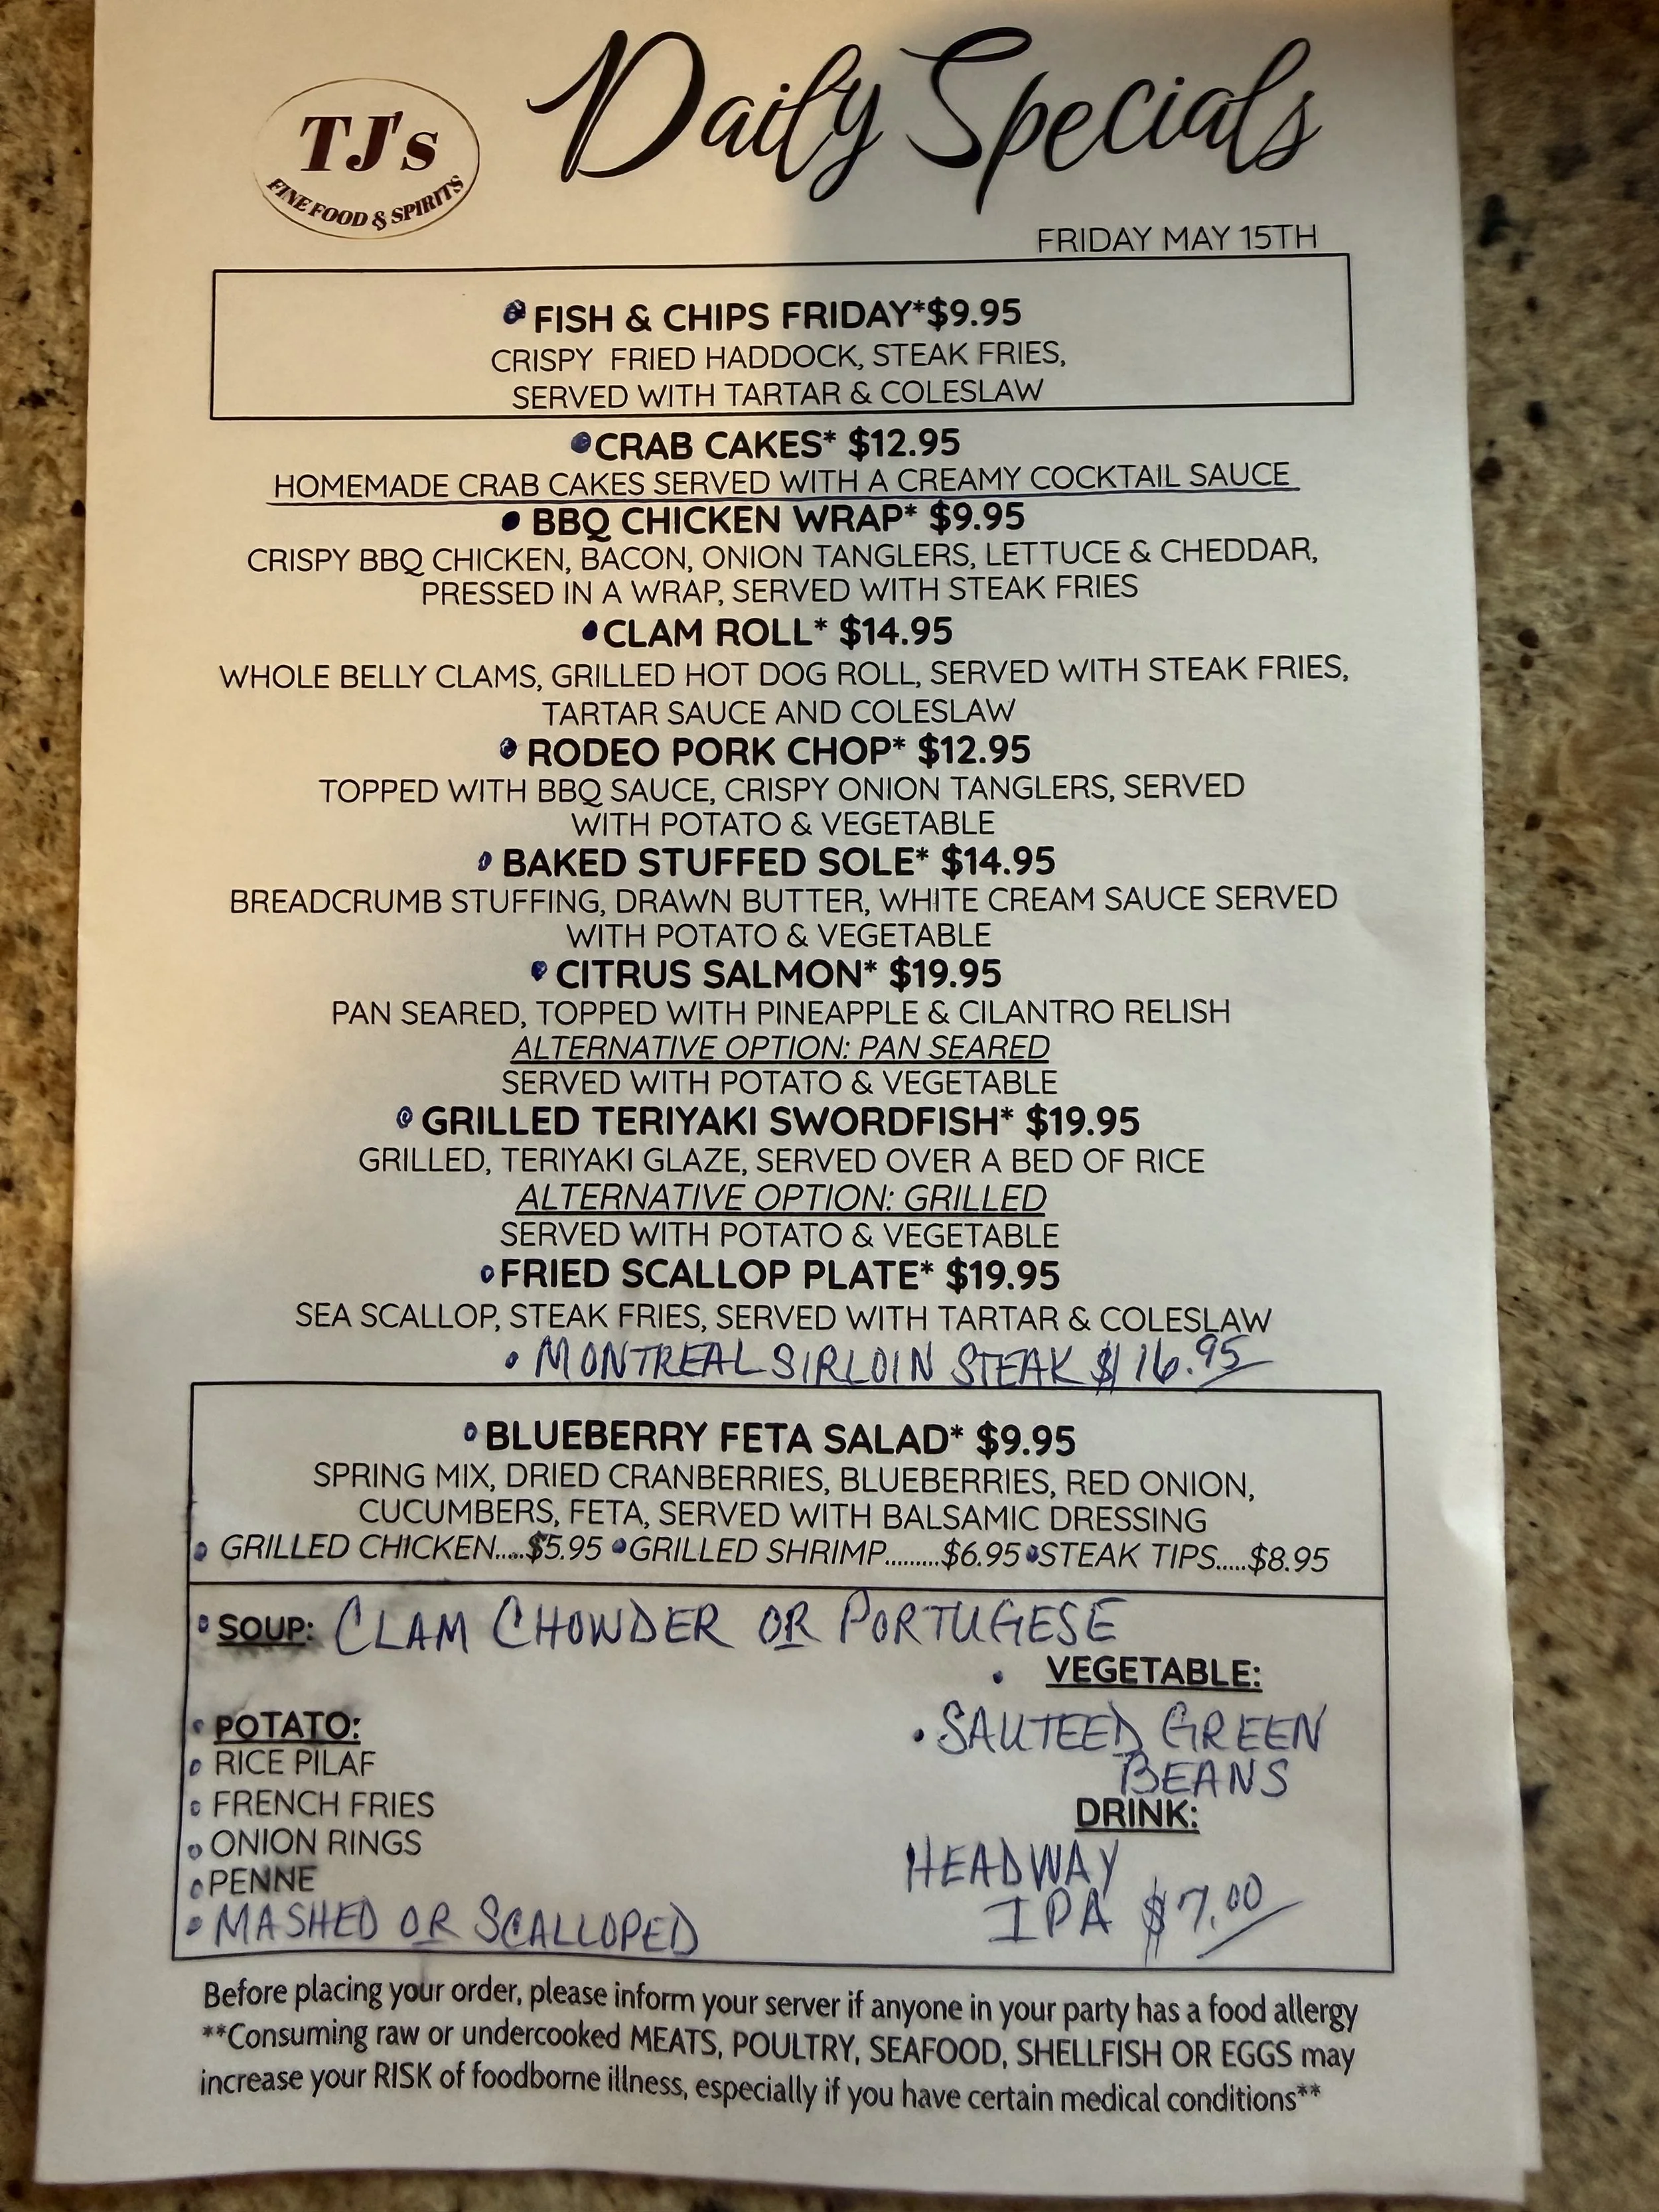 TJ's
FINE FOOD & SPIRITS
Daily Specials
FRIDAY MAY 15TH
FISH & CHIPS FRIDAY*$9.95
CRISPY FRIED HADDOCK, STEAK FRIES,
SERVED WITH TARTAR & COLESLAW
CRAB CAKES* $12.95
HOMEMADE CRAB CAKES SERVED WITH A CREAMY COCKTAIL SAUCE
• BBQ CHICKEN WRAP* $9.95
CRISPY BBQ CHICKEN, BACON, ONION TANGLERS, LETTUCE & CHEDDAR,
PRESSED IN A WRAP, SERVED WITH STEAK FRIES
•CLAM ROLL* $14.95
WHOLE BELLY CLAMS, GRILLED HOT DOG ROLL, SERVED WITH STEAK FRIES,
TARTAR SAUCE AND COLESLAW
• RODEO PORK CHOP* $12.95
TOPPED WITH BBQ SAUCE, CRISPY ONION TANGLERS, SERVED
WITH POTATO & VEGETABLE
• BAKED STUFFED SOLE* $14.95
BREADCRUMB STUFFING, DRAWN BUTTER, WHITE CREAM SAUCE SERVED
WITH POTATO & VEGETABLE
• CITRUS SALMON* $19.95
PAN SEARED, TOPPED WITH PINEAPPLE & CILANTRO RELISH
ALTERNATIVE OPTION: PAN SEARED
SERVED WITH POTATO & VEGETABLE
• GRILLED TERIYAKI SWORDFISH* $19.95
GRILLED, TERIYAKI GLAZE, SERVED OVER A BED OF RICE
ALTERNATIVE OPTION: GRILLED
SERVED WITH POTATO & VEGETABLE
•FRIED SCALLOP PLATE* $19.95
SEA SCALLOP, STEAK FRIES, SERVED WITH TARTAR & COLESLAW
• MONTREAL SIRLOIN STEAK $16.95
•BLUEBERRY FETA SALAD* $9.95
SPRING MIX, DRIED CRANBERRIES, BLUEBERRIES, RED ONION,
CUCUMBERS, FETA, SERVED WITH BALSAMIC DRESSING
• GRILLED CHICKEN.....$5.95 •GRILLED SHRIMP.........$6.95 •STEAK TIPS.....$8.95
• SOUP: CLAM CHOWDER OR PORTUGESE
• VEGETABLE:
• SAUTEED GREEN
BEANS
• POTATO:
• RICE PILAF
• FRENCH FRIES
• ONION RINGS
• PENNE
• MASHED OR SCALLOPED
DRINK:
HEADWAY
IPA $7.00
Before placing your order, please inform your server if anyone in your party has a food allergy
**Consuming raw or undercooked MEATS, POULTRY, SEAFOOD, SHELLFISH OR EGGS may
increase your RISK of foodborne illness, especially if you have certain medical conditions**